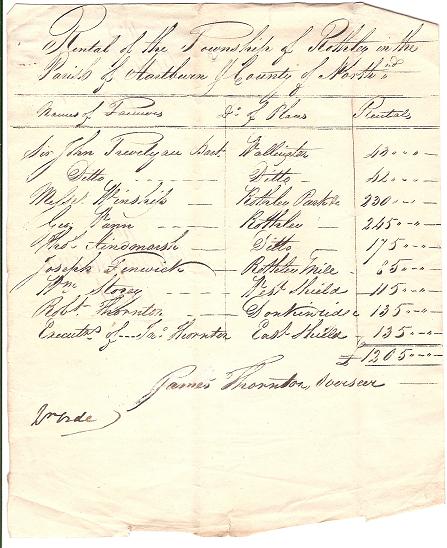 Rental of the Township of Rothley in the
Parish of Hartburn & County of North'd
Names of Farmers Do. of Places Rentals
Sir John Trevelyan Bart. Wallington 40 " - " -
Ditto Ditto 42 " - " -
Messrs Winship Rothley Park & 230 " - " -
Geo Vann Rothley 245 " - " -
Thos. Hindmarsh Ditto 175 " - " -
Joseph Fenwick Rothley Mill 85 " - " -
Wm Storey West Shield 115 " - " -
Robt Thornton Donkinridge 135 " - " -
Executrs of Jas. Thornton East Shield 135 " - " -
£ 1205 " - " -
James Thornton, Overseer